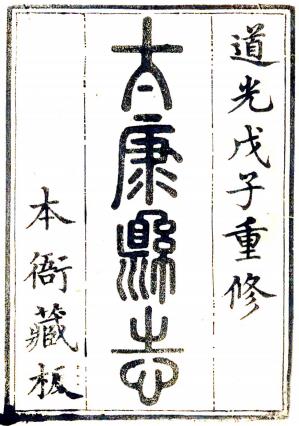 道光戊子重修
太康縣志
本衙藏板